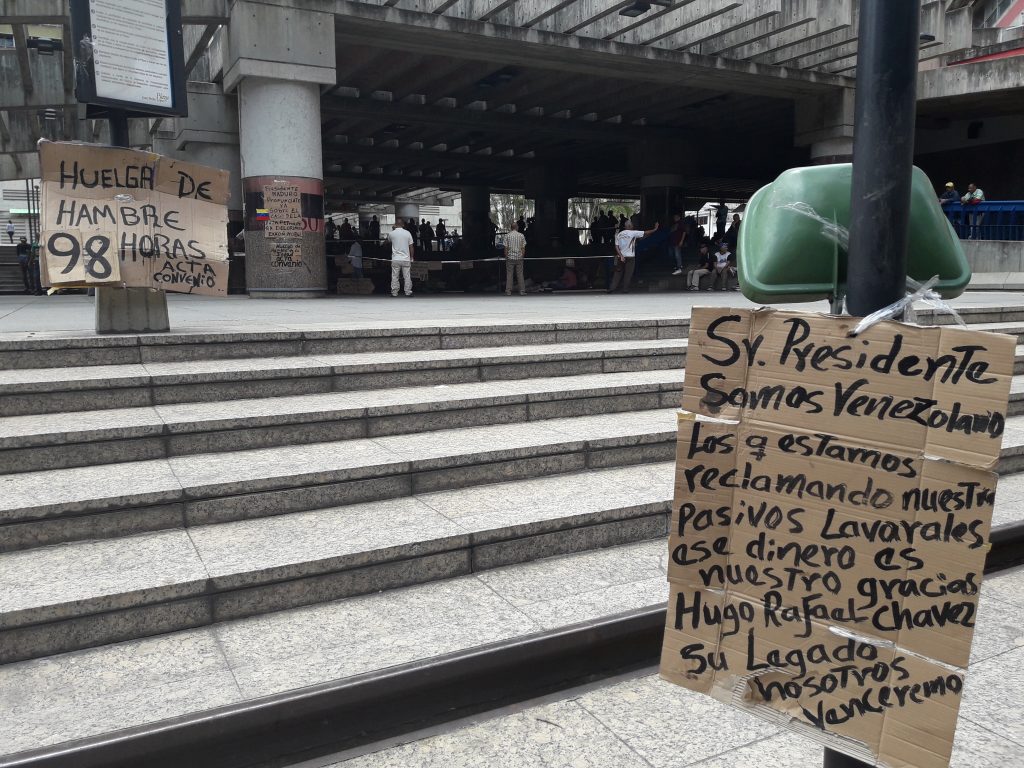 HUELGA DE
HAMBRE
98 HORAS
ACTA
CONVENIO
PRESIDENTE
MADURO
PRONUNCIATE
YA
Sr. Presidente
Somos Venezolano
Los q estamos
reclamando nuestro
Pasivos Lavarales
ese dinero es
nuestro gracias
Hugo Rafael Chavez
Su Legado
nosotros
venceremo